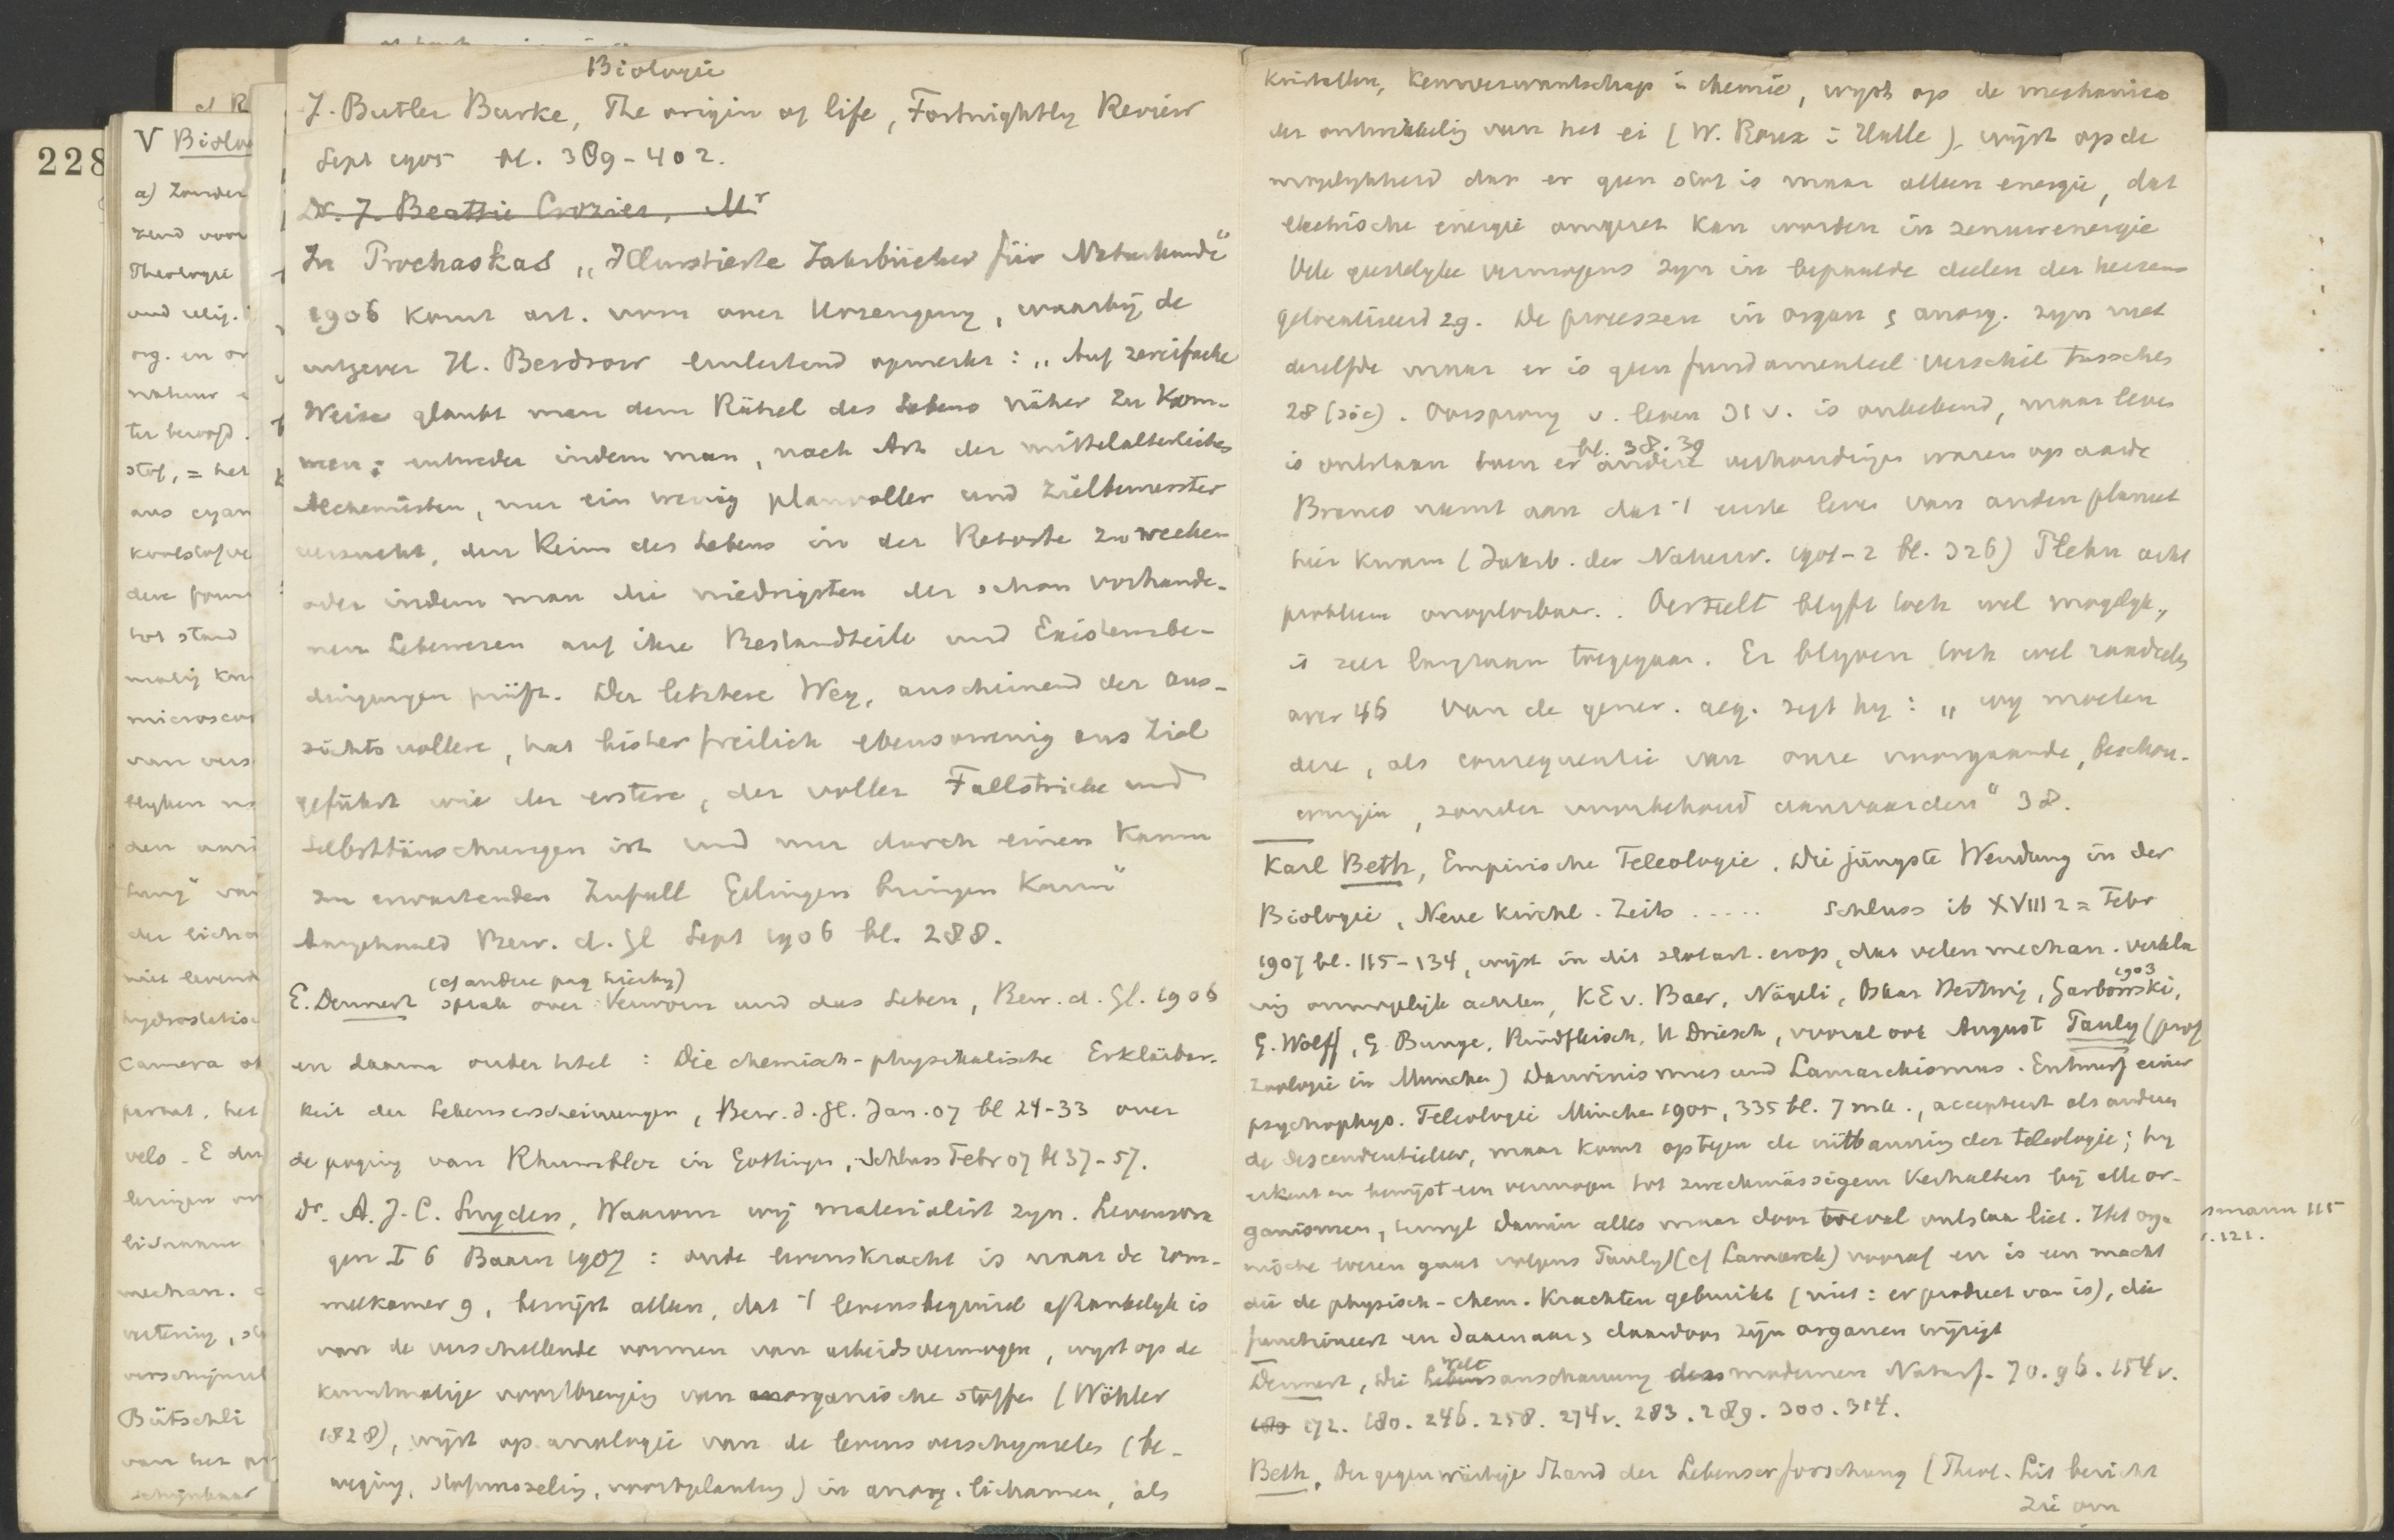 228
V Biolo
a) Zonder
zend voor
Theologie
und relig.
org. en or
natuur
ter beroofd.
stof, = het
ans cyan
koolstof
dere form
tot stand
matig kn
microscop
van vers
blijken
den
tung" van
der licha
niet levend
hydrostatisc
Camera ob
velo. E du
leringen
lichaam
mechan.
verschijnsel
Bütschli
van het
schijnbaar
Biologie
J. Butler Burke, The origin of life, Fortnightly Review
Sept 1905 bl. 389-402.
Dr. J. Beattie Crozier, Mr
In Prochaskas „Illustrierte Jahrbücher für Naturkunde"
1906 komt art. voor over Urzeugung, waarbij de
uitgever H. Berdrow inleidend opmerkt: „Auf zweifache
Weise glaubt man dem Rätsel des Lebens näher zu kom-
men: entweder indem man, nach Art der mittelalterlichen
Alchemisten, nur ein wenig planvoller und zielbewusster
versucht, den Keim des Lebens in der Retorte zu wecken
oder indem man die niedrigsten der schon vorhande-
nen Lebewesen auf ihre Bestandteile und Existenzbe-
dingungen prüft. Der letztere Weg, anscheinend der aus-
sichtsvollere, hat bisher freilich ebensowenig ans Ziel
geführt wie der erstere, der voller Fallstricke und
Selbsttäuschungen ist und nur durch einen kaum
zu erwartenden Zufall Gelingen bringen kann"
Aangehaald Bew. d. Gl Sept 1906 bl. 288.
(cf andere pag hierbij)
E. Dennert sprak over Verworn und das Leben, Bew. d. Gl. 1906
en daarna onder titel: Die chemisch-physikalische Erklärbar-
keit der Lebenserscheinungen, Bew. d. Gl. Jan. 07 bl 24-33 over
de poging van Rhumbler in Gottingen, Schluss Febr 07 bl 37-57.
Dr. A. J. C. Snyders, Waarom wij materialist zyn. Levensvra
gen I 6 Baarn 1907: oude levenskracht is naar de rom-
melkamer 9, bewijst alleen, dat 't levensbeginsel afhankelijk is
van de verschillende vormen van arbeidsvermogen, wijst op de
kunstmatige voortbrenging van organische stoffen (Wöhler
1828), wijst op analogie van de levensverschijnselen (be-
weging, stofwisseling, voortplanting) in anorg. lichamen, als
kristallen, keurverwantschap in chemie, wijst op de mechanica
der ontwikkeling van het ei (W. Roux in Halle), wijst op de
mogelijkheid dat er geen stof is maar alleen energie, dat
electrische energie omgezet kan worden in zenuwenergie
Vele geestelijke vermogens zijn in bepaalde deelen der hersens
gelocaliseerd 29. De processen in organ & anorg. zyn niet
dezelfde maar er is geen fundamenteel verschil tusschen
28 (sic). Oorsprong v. leven 31 v. is onbekend, maar leven
bl. 38. 39
is ontstaan toen er andere verhoudingen waren op aarde
Branco neemt aan dat 't eerste leven van andere planeet
hier kwam (Jahrb. der Naturw. 1901-2 bl. 326) Plehn acht
probleem onoplosbaar. Oertijd blijft toch wel mogelijk,
is zeer langzaam toegegaan. Er blijven toch wel raadsels
over 46 Van de gener. aeq. zegt hij: „wij moeten
deze, als consequentie van onze voorgaande beschou-
wingen, zonder voorbehoud aanvaarden" 38.
Karl Beth, Empirische Teleologie. Die jüngste Wendung in der
Biologie, Neue Kirchl. Zeits ..... Schluss ib XVIII 2 = Febr
1907 bl. 115-134, wijst in dit slotart. erop, dat velen mechan. verkla
ring onmogelijk achten, K E v. Baer, Nägeli, Oskar Hertwig, Garbowski 1903,
G. Wolff, G. Bunge, Rindfleisch, H Driesch, vooral ook August Pauly (prof
zoologie in Munchen) Darwinismus und Lamarckismus. Entwurf einer
psychophys. Teleologie München 1905, 335 bl. 7 mk., accepteert als anderen
de descendentieleer, maar komt op tegen de uitbanning der teleologie; hij
erkent en bewijst een vermogen tot zweckmässigem Verhalten bij alle or-
ganismen, terwijl Darwin alles maar door toeval ontstaan liet. Het orga
nische wezen gaat volgens Pauly (cf Lamarck) vooraf en is een macht
die de physisch-chem. krachten gebruikt (niet: er product van is), die
functioneert en daarnaar & daardoor zijn organen wijzigt
Dennert, Die Weltanschauung des modernen Naturf. 70. 96. 154 v.
172. 180. 246. 258. 274 v. 283. 289. 300. 314.
Beth, Der gegenwärtige Stand der Lebenserforschung (Theol. Lit bericht
zie om
smann 115
. 121.